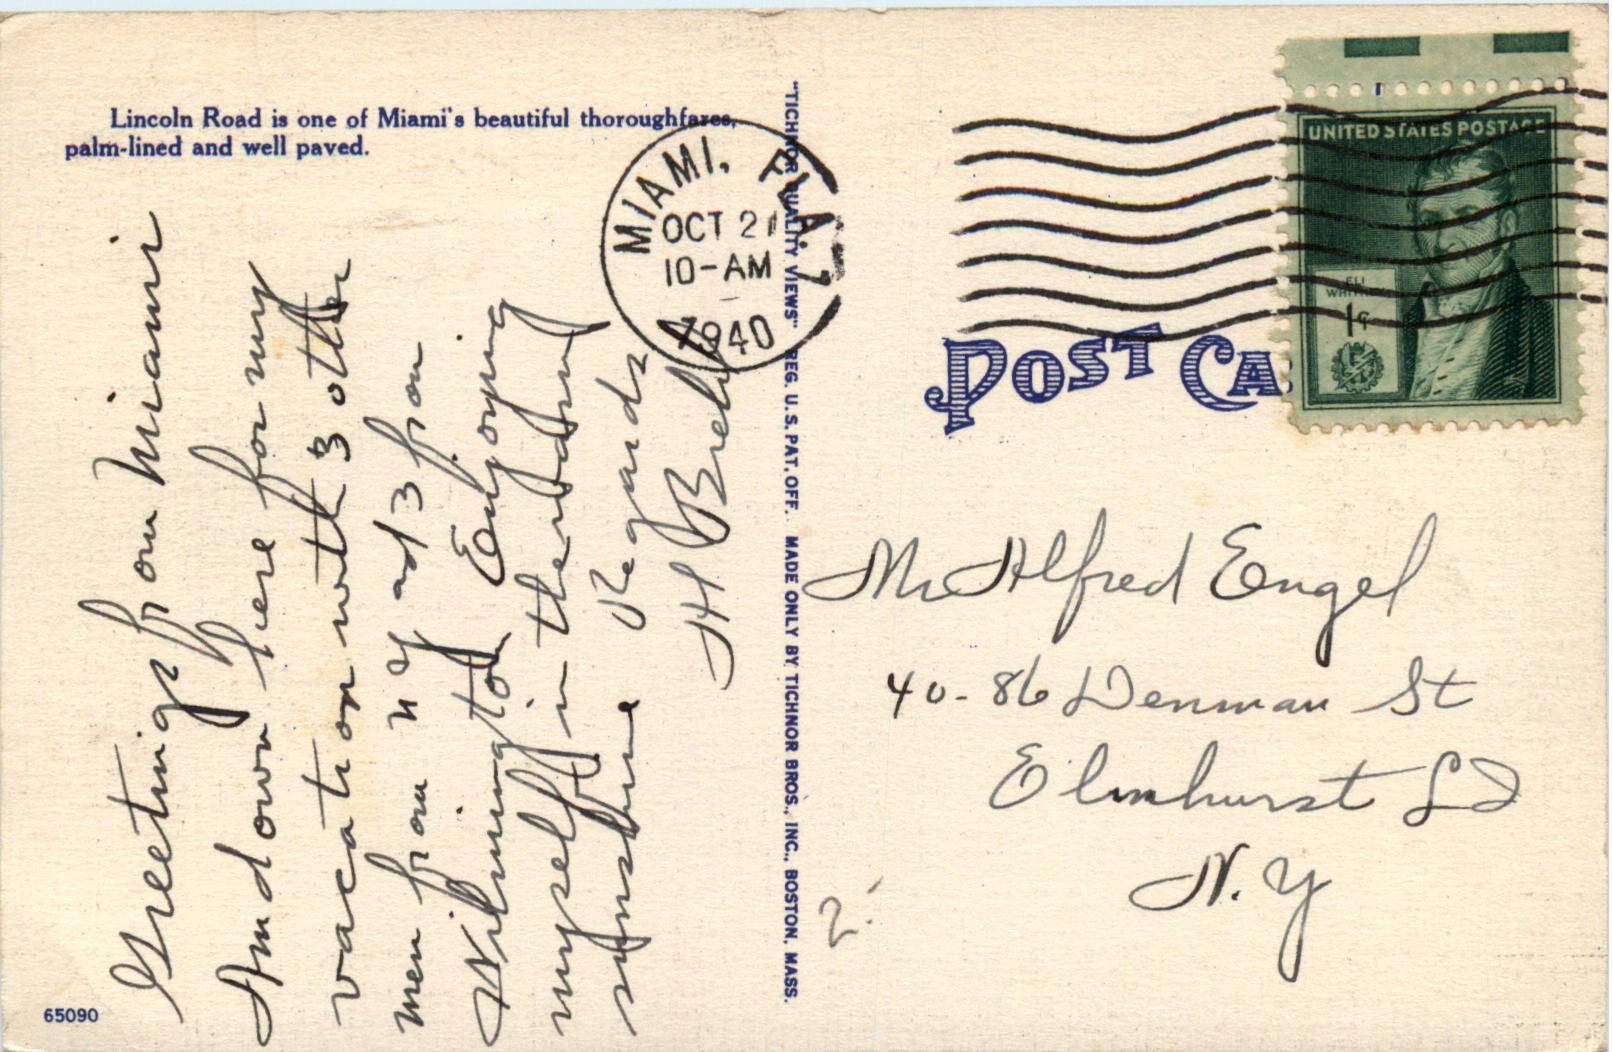 Lincoln Road is one of Miami's beautiful thoroughfares,
palm-lined and well paved.
Greetings from Miami
Am down here for my
vacation with 3 other
men from NY and 3 from
Wilmington Enjoying
myself in the water and
sunshine Regards
H
65090
"TICHNOR QUALITY VIEWS" REG. U.S. PAT. OFF. MADE ONLY BY TICHNOR BROS., INC., BOSTON, MASS.
MIAMI, FLA.
OCT 21
10-AM
1940
POST CA
UNITED STATES POSTAGE
ELI
WHITNEY
1¢
Mr Alfred Engel
40-86 Denman St
Elmhurst LI
N.Y
2.